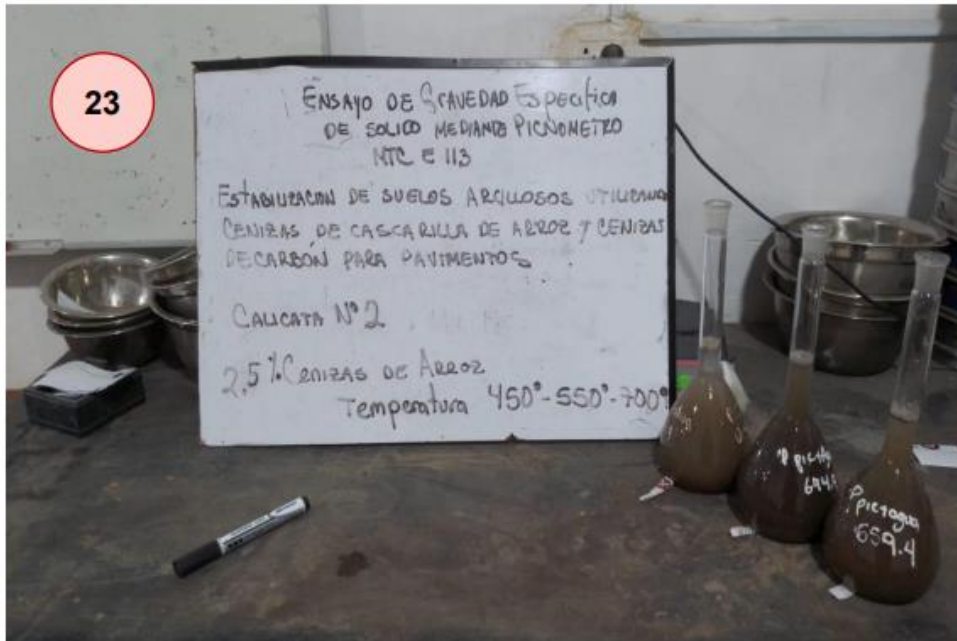 23
ENSAYO DE GRAVEDAD Especifica
DE SOLIDO MEDIANTE PICNOMETRO
MTC E 113
ESTABILIZACION DE SUELOS ARCILLOSOS UTILIZANDO
CENIZAS DE CASCARILLA DE ARROZ Y CENIZAS
DE CARBÓN PARA PAVIMENTOS
CALICATA N° 2
2,5 % CENIZAS DE ARROZ
Temperatura 450°-550°-700°
P pic+agua
659.4